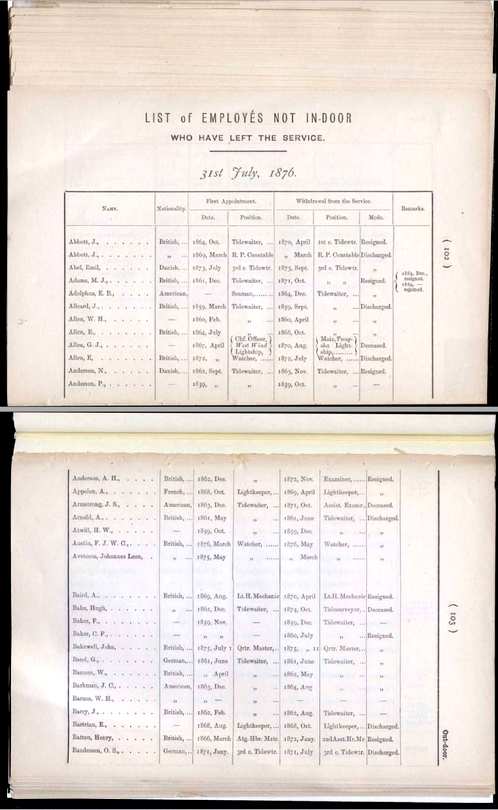 LIST of EMPLOYÉS NOT IN-DOOR
WHO HAVE LEFT THE SERVICE.
31st July, 1876.
First Appointment. Withdrawal from the Service.
NAME. Nationality. Remarks.
Date. Position. Date. Position. Mode.
Abbott, J., British, ... 1864, Oct. Tidewaiter, ... 1870, April 1st c. Tidewtr. Resigned.
Abbott, J., „ 1869, March R. P. Constable „ March R. P. Constable Discharged.
Abel, Emil, Danish, ... 1873, July 3rd c. Tidewtr. 1875, Sept. 3rd c. Tidewtr. „
Adams, M. J., British, ... 1861, Dec. Tidewaiter, ... 1871, Oct. „ „ Resigned.
1864, Dec., resigned. 1864, — rejoined.
Adolphus, E. B., American, Seaman, 1864, Dec. Tidewaiter, ... „
Allcard, J., British, ... 1859, March Tidewaiter, ... 1859, Sept. „ Discharged.
Allen, W. H., — 1860, Feb. „ 1860, April „
Allen, E., British, ... 1864, July „ 1868, Oct. „
Allen, G. J., — 1867, April Chf. Officer, West Wind Lightship, 1870, Aug. Mate, Light-ship, Deceased.
Allen, E, British, ... 1872, „ Watcher, ... 1872, July Watcher, Discharged.
Anderson, N., Danish, ... 1862, Sept. Tidewaiter, ... 1863, Nov. Tidewaiter, ... Resigned.
Anderson, P., — 1859, „ „ 1859, Oct. „ —
( 102 )
Anderson, A. H., British, ... 1862, Dec. „ 1872, Nov. Examiner, Resigned.
Appolon, A., French, ... 1868, Oct. Lightkeeper, ... 1869, April Lightkeeper, ... „
Armstrong, J. S., American, 1863, Dec. Tidewaiter, ... 1871, Oct. Assist. Examr., Deceased.
Arnold, A., British, ... 1861, May „ 1861, June Tidewaiter, ... Discharged.
Atwill, H. W., 1859, Oct. „ 1859, Dec. „ „
Austin, F. J. W. C., British, ... 1876, March Watcher, 1876, May Watcher, „
Johannes Leon, „ 1875, May „ „ March „ „
Baird, A., British, ... 1869, Aug. Lt.H. Mechanic 1870, April Lt.H. Mechanic Resigned.
Bahn, Hugh, „ 1861, Dec. Tidewaiter, ... 1874, Oct. Tidesurveyor, .. Deceased.
Baker, F., — 1859, Nov. „ 1859, Dec. Tidewaiter, ... —
Baker, C. F., — „ „ „ 1860, July „ Resigned.
Bakewell, John, British, ... 1875, July 1 Qrtr. Master, .. 1875, „ 11 Qrtr. Master, .. „
Band, G., German, ... 1861, June Tidewaiter, ... 1861, June Tidewaiter, ... „
W., British, ... „ April „ 1862, May „ „
Barkman, J. C., American, 1863, Dec. „ 1864, Aug „ „
Barnes, W. H., „ — „ — — —
Barry, J., British, ... 1862, Feb. „ 1862, Aug. Tidewaiter, ... „
Bartrian, E., — 1868, Aug. Lightkeeper, ... 1868, Oct. Lightkeeper, ... Discharged.
Batton, Henry, British, ... 1866, March Atg. Hbr. Mate. 1872, Jany. 2nd Asst. Hr. Mr Resigned.
O. S., German, .. 1871, Jany. 3rd c. Tidewtr. 1871, July 3rd c. Tidewtr. Discharged.
( 103 )
Out-door.